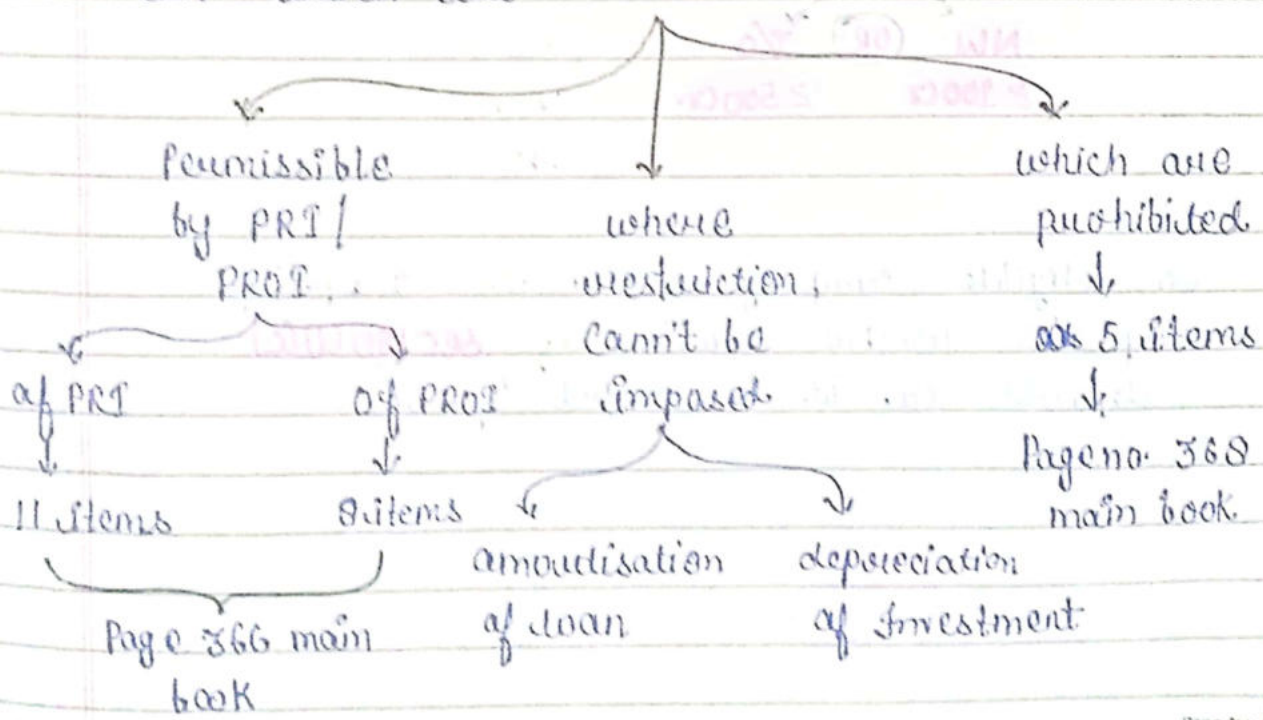 Permissible
by PRI/
PROI.
of PRI
11 items
of PROI
8 items
Page 366 main
book
where
restriction
cann't be
imposed.
amortisation
of loan
depreciation
of Investment
which are
prohibited
5 items
Page no. 368
main book.